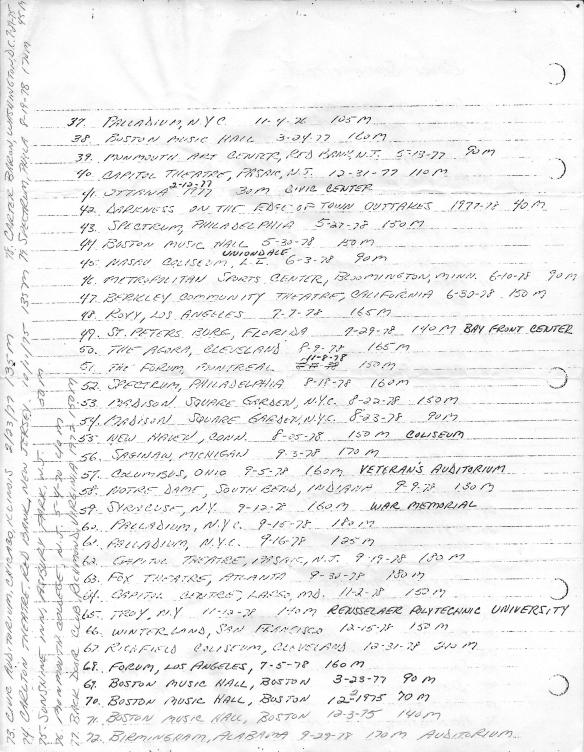 37. PALLADIUM, NYC 11-4-76 105 M
38. BOSTON MUSIC HALL 3-24-77 160 M
39. MONMOUTH ART CENTER, RED BANK, N.J. 5-13-77 90 M
40. CAPITOL THEATRE, PASAIC, N.J. 12-31-77 110 M
41. OTTAWA 2-12-77 30 M CIVIC CENTER
42. DARKNESS ON THE EDGE OF TOWN OUTTAKES 1977-78 40 M
43. SPECTRUM, PHILADELPHIA 5-27-78 150 M
44. BOSTON MUSIC HALL 5-30-78 150 M
45. NASAU COLISEUM, UNIONDALE L.I. 6-3-78 90 M
46. METROPOLITAN SPORTS CENTER, BLOOMINGTON, MINN. 6-10-78 90 M
47. BERKLEY COMMUNITY THEATRE, CALIFORNIA 6-30-78 150 M
48. ROXY, LOS ANGELES 7-7-78 165 M
49. ST. PETERS BURG, FLORIDA 7-29-78 140 M BAY FRONT CENTER
50. THE AGORA, CLEVELAND 8-9-78 165 M
51. THE FORUM, MONTREAL 11-8-78 150 M
52. SPECTRUM, PHILADELPHIA 8-18-78 160 M
53. MADISON SQUARE GARDEN, N.Y.C. 8-22-78 150 M
54. MADISON SQUARE GARDEN, N.Y.C. 8-23-78 90 M
55. NEW HAVEN, CONN. 8-25-78 150 M COLISEUM
56. SAGINAW, MICHIGAN 9-3-78 170 M
57. COLUMBUS, OHIO 9-5-78 160 M VETERAN'S AUDITORIUM
58. NOTRE DAME, SOUTH BEND, INDIANA 9-9-78 150 M
59. SYRACUSE, N.Y. 9-12-78 160 M WAR MEMORIAL
60. PALLADIUM, N.Y.C. 9-15-78 180 M
61. PALLADIUM, N.Y.C. 9-16-78 125 M
62. CAPITOL THEATRE, PASAIC, N.J. 9-19-78 180 M
63. FOX THEATRE, ATLANTA 9-30-78 180 M
64. CAPITOL CENTRE, LARGO, MD. 11-2-78 150 M
65. TROY, N.Y. 11-12-78 140 M RENSSELAER POLYTECHNIC UNIVERSITY
66. WINTERLAND, SAN FRANCISCO 12-15-78 150 M
67. RICHFIELD COLISEUM, CLEVELAND 12-31-78 210 M
68. FORUM, LOS ANGELES, 7-5-78 160 M
69. BOSTON MUSIC HALL, BOSTON 3-23-77 90 M
70. BOSTON MUSIC HALL, BOSTON 12-2-1975 70 M
71. BOSTON MUSIC HALL, BOSTON 12-3-75 140 M
72. BIRMINGHAM, ALABAMA 9-29-78 170 M AUDITORIUM
73. CIVIC AUDITORIUM, CHICAGO, ILLINOIS 2/23/77 135 M
74. CARLTON THEATRE, RED BANK, NEW JERSEY 10/11/75 135 M
75. SUNSHINE INN, ASBURY PARK, N.J.
76. MONMOUTH COLLEGE, N.J.
77. BACK DOOR CLUB, RICHMOND, VIRGINIA 1972
78. CARTER BARN, WASHINGTON, D.C.
79. SPECTRUM, PHILA 8-19-78 174 M